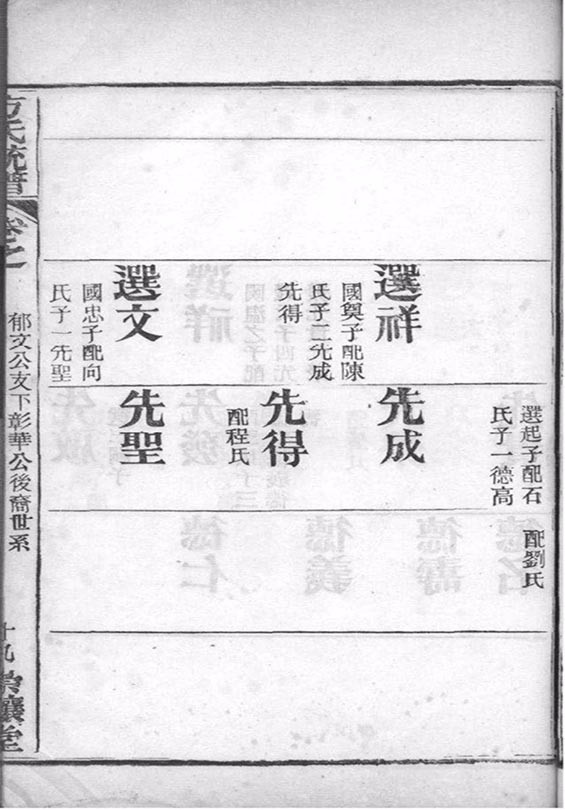 選祥
國奠子配陳
氏子二先成
先得
選文
國忠子配向
氏子一先聖
選起子配石
氏子一德高
先成
先得
配程氏
先聖
配劉氏
方氏統譜
卷之
郁文公支下彰華公後裔世系
十九